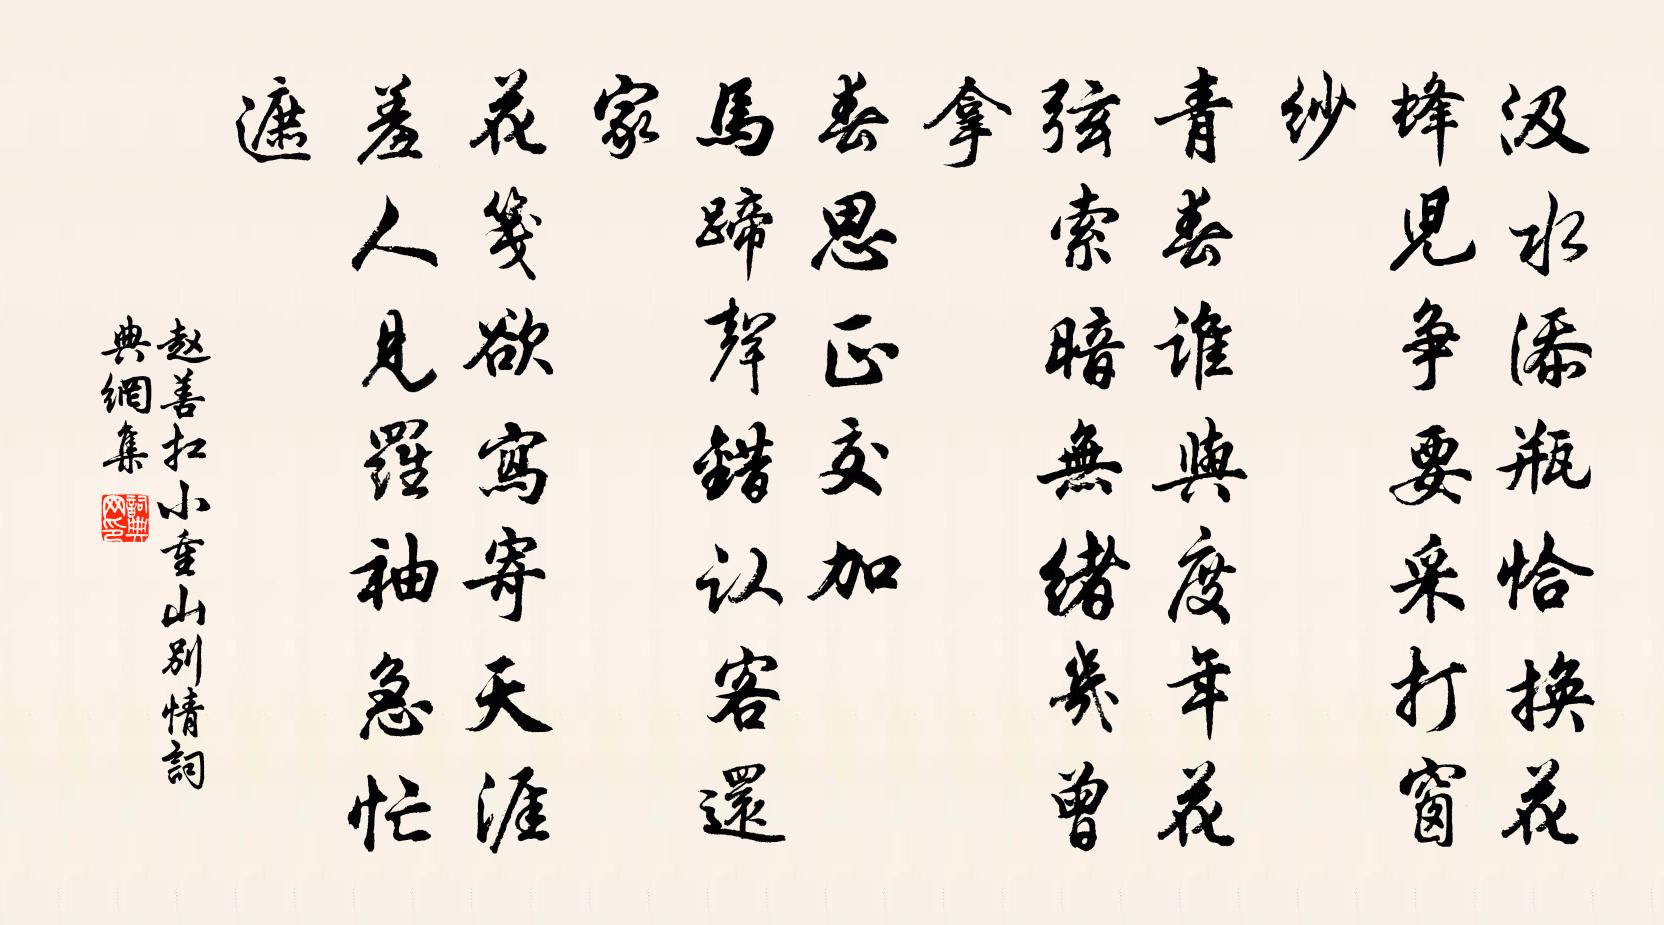 汲水添瓶恰換花
蜂兒争要采打窗
紗
青春誰與度年花
弦索暗無緒幾曾
拿
春思正交加
馬蹄聲錯认客還
家
花箋欲寫寄天涯
羞人見羅袖急忙
遮
赵善扛小重山别情詞
典網集
詞典
网印